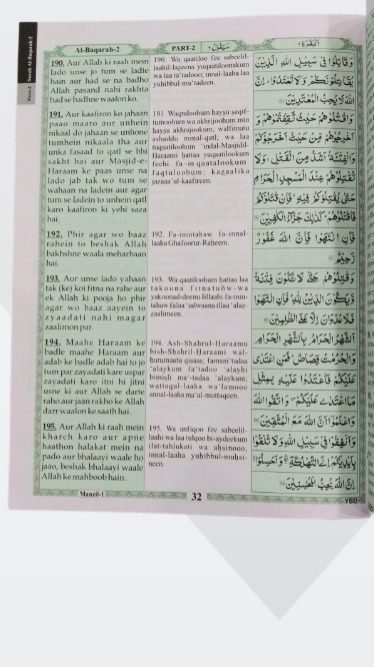 Al-Baqarah-2
PART-2
سَيَقُولُ ٢
اَلْبَقَرَة ٢
Part-2 Surah Al-Baqarah-2
190. Aur Allah ki raah mein
lado unse jo tum se ladte
hain aur had se na badho
Allah pasand nahi rakhta
had se badhne waalon ko.
191. Aur kaafiron ko jahaan
paao maaro aur unhein
nikaal do jahaan se unhone
tumhein nikaala tha aur
unka fasaad to qatl se bhi
sakht hai aur Masjid-e-
Haraam ke paas unse na
lado jab tak wo tum se
wahaan na ladein aur agar
tum se ladein to unhein qatl
karo kaafiron ki yehi saza
hai.
192. Phir agar wo baaz
rahein to beshak Allah
bakhshne waala meharbaan
hai.
193. Aur unse lado yahaan
tak (ke) koi fitna na rahe aur
ek Allah ki pooja ho phir
agar wo baaz aayein to
zyaadati nahi magar
zaalimon par.
194. Maahe Haraam ke
badle maahe Haraam aur
adab ke badle adab hai to jo
tum par zayadati kare uspar
zayadati karo itni hi jitni
usne ki aur Allah se darte
raho aur jaan rakho ke Allah
darr waalon ke saath hai.
195. Aur Allah ki raah mein
kharch karo aur apne
haathon halakat mein na
pado aur bhalaayi waale ho
jaao, beshak bhalaayi waale
Allah ke mahboob hain.
190. Wa qaatiloo fee sabeelil-
laahil-lazeena yuqaatiloonakum
wa laa ta'tadooo; innal-laaha laa
yuhibbul-mu'tadeen.
191. Waqtuloohum haysu saqif-
tumoohum wa akhrijoohum min
haysu akhrajookum; walfitnatu
ashaddu minal-qatl; wa laa
tuqaatiloohum 'indal-Masjidil-
Haraami hattaa yuqaatilookum
feehi fa-in qaatalookum
faqtuloohum; kazaalika
jazaaa'ul-kaafireen.
192. Fa-inintahaw fa-innal-
laaha Ghafoorur-Raheem.
193. Wa qaatiloohum hattaa laa
takoona fitnatunw-wa
yakoonad-deenu lillaahi fa-inin-
tahaw falaa 'udwaana illaa 'alaz-
zaalimeen.
194. Ash-Shahrul-Haraamu
bish-Shahril-Haraami wal-
hurumaatu qisaas; famani'tadaa
'alaykum fa'tadoo 'alayhi
bimisli ma'-tadaa 'alaykum;
wattaqul-laaha wa'lamooo
annal-laaha ma'al-muttaqeen.
195. Wa anfiqoo fee sabeelil-
laahi wa laa tulqoo bi-aydeekum
ilat-tahlukati wa ahsinooo;
innal-laaha yuhibbul-muhsi-
neen.
وَقَاتِلُوْا فِيْ سَبِيْلِ اللّٰهِ الَّذِيْنَ
يُقَاتِلُوْنَكُمْ وَلَا تَعْتَدُوْا ؕ اِنَّ
اللّٰهَ لَا يُحِبُّ الْمُعْتَدِيْنَ
وَاقْتُلُوْهُمْ حَيْثُ ثَقِفْتُمُوْهُمْ وَ
اَخْرِجُوْهُمْ مِّنْ حَيْثُ اَخْرَجُوْكُمْ
وَالْفِتْنَةُ اَشَدُّ مِنَ الْقَتْلِ ۚ وَلَا
تُقٰتِلُوْهُمْ عِنْدَ الْمَسْجِدِ الْحَرَامِ
حَتّٰى يُقٰتِلُوْكُمْ فِيْهِ ۚ فَاِنْ قٰتَلُوْكُمْ
فَاقْتُلُوْهُمْ ؕ كَذٰلِكَ جَزَآءُ الْكٰفِرِيْنَ
فَاِنِ انْتَهَوْا فَاِنَّ اللّٰهَ غَفُوْرٌ
رَّحِيْمٌ
وَقٰتِلُوْهُمْ حَتّٰى لَا تَكُوْنَ فِتْنَةٌ
وَّيَكُوْنَ الدِّيْنُ لِلّٰهِ ؕ فَاِنِ انْتَهَوْا
فَلَا عُدْوَانَ اِلَّا عَلَى الظّٰلِمِيْنَ
اَلشَّهْرُ الْحَرَامُ بِالشَّهْرِ الْحَرَامِ
وَالْحُرُمٰتُ قِصَاصٌ ؕ فَمَنِ اعْتَدٰى
عَلَيْكُمْ فَاعْتَدُوْا عَلَيْهِ بِمِثْلِ
مَا اعْتَدٰى عَلَيْكُمْ ۪ وَاتَّقُوا اللّٰهَ
وَاعْلَمُوْٓا اَنَّ اللّٰهَ مَعَ الْمُتَّقِيْنَ
وَاَنْفِقُوْا فِيْ سَبِيْلِ اللّٰهِ وَلَا تُلْقُوْا
بِاَيْدِيْكُمْ اِلَى التَّهْلُكَةِ ۛ وَاَحْسِنُوْا ۛ
اِنَّ اللّٰهَ يُحِبُّ الْمُحْسِنِيْنَ
Manzil-1
32
VBD